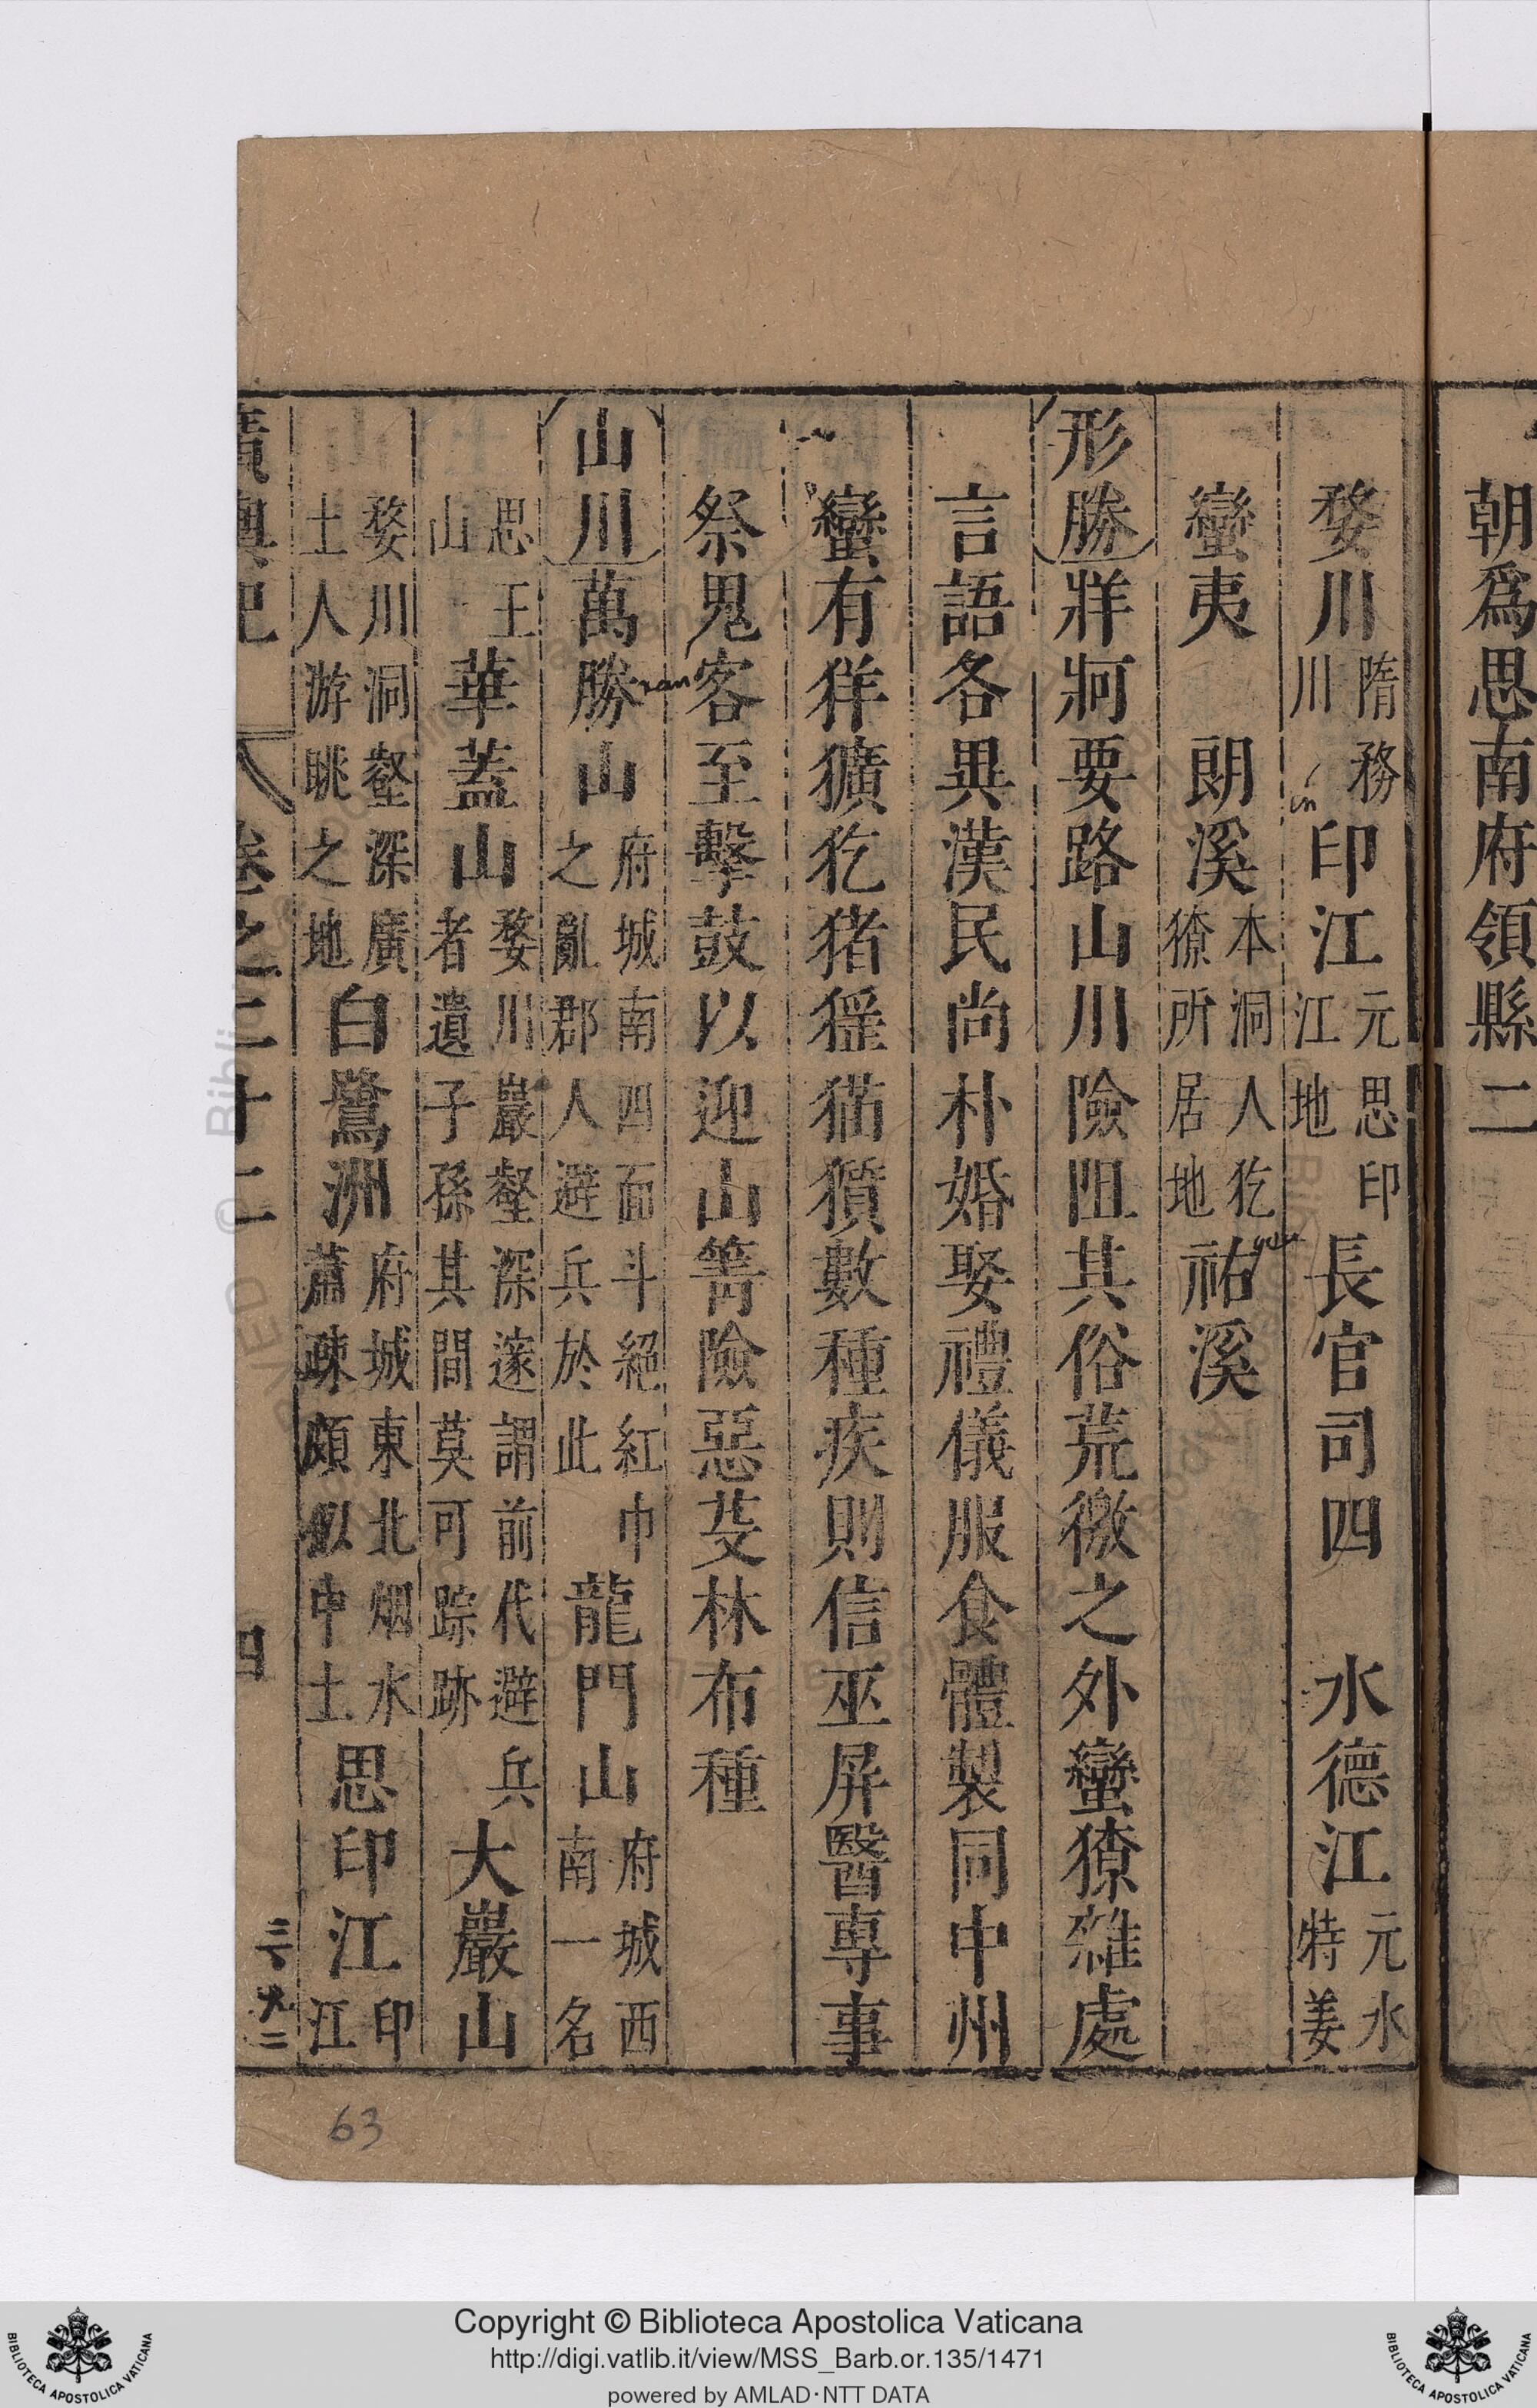 朝爲思南府領縣二
婺川隋務川 印江元思印江地 長官司四 水德江元水特姜
蠻夷 朗溪本洞人犵獠所居地 祐溪
形勝 牂牁要路山川險阻其俗荒徼之外蠻獠雜處
言語各異漢民尚朴婚娶禮儀服食體製同中州
蠻有㺊獷犵猪猺猫獚數種疾則信巫屏醫專事
祭鬼客至擊鼓以迎山箐險惡芟林布種
山川 萬勝山府城南四面斗絕紅巾之亂郡人避兵於此 龍門山府城西南一名
思王山 華蓋山婺川巖壑深邃謂前代避兵者遺子孫其間莫可踪跡 大巖山
婺川洞壑深廣土人游眺之地 白鷺洲府城東北烟水蕭疎頗似中土 思印江印江
廣輿記 卷之二十二 四
三百九二
63
in
yeu
xan
Copyright © Biblioteca Apostolica Vaticana
http://digi.vatlib.it/view/MSS_Barb.or.135/1471
powered by AMLAD·NTT DATA
BIBLIOTECA APOSTOLICA VATICANA
BIBLIOTECA APOSTOLICA VATICANA